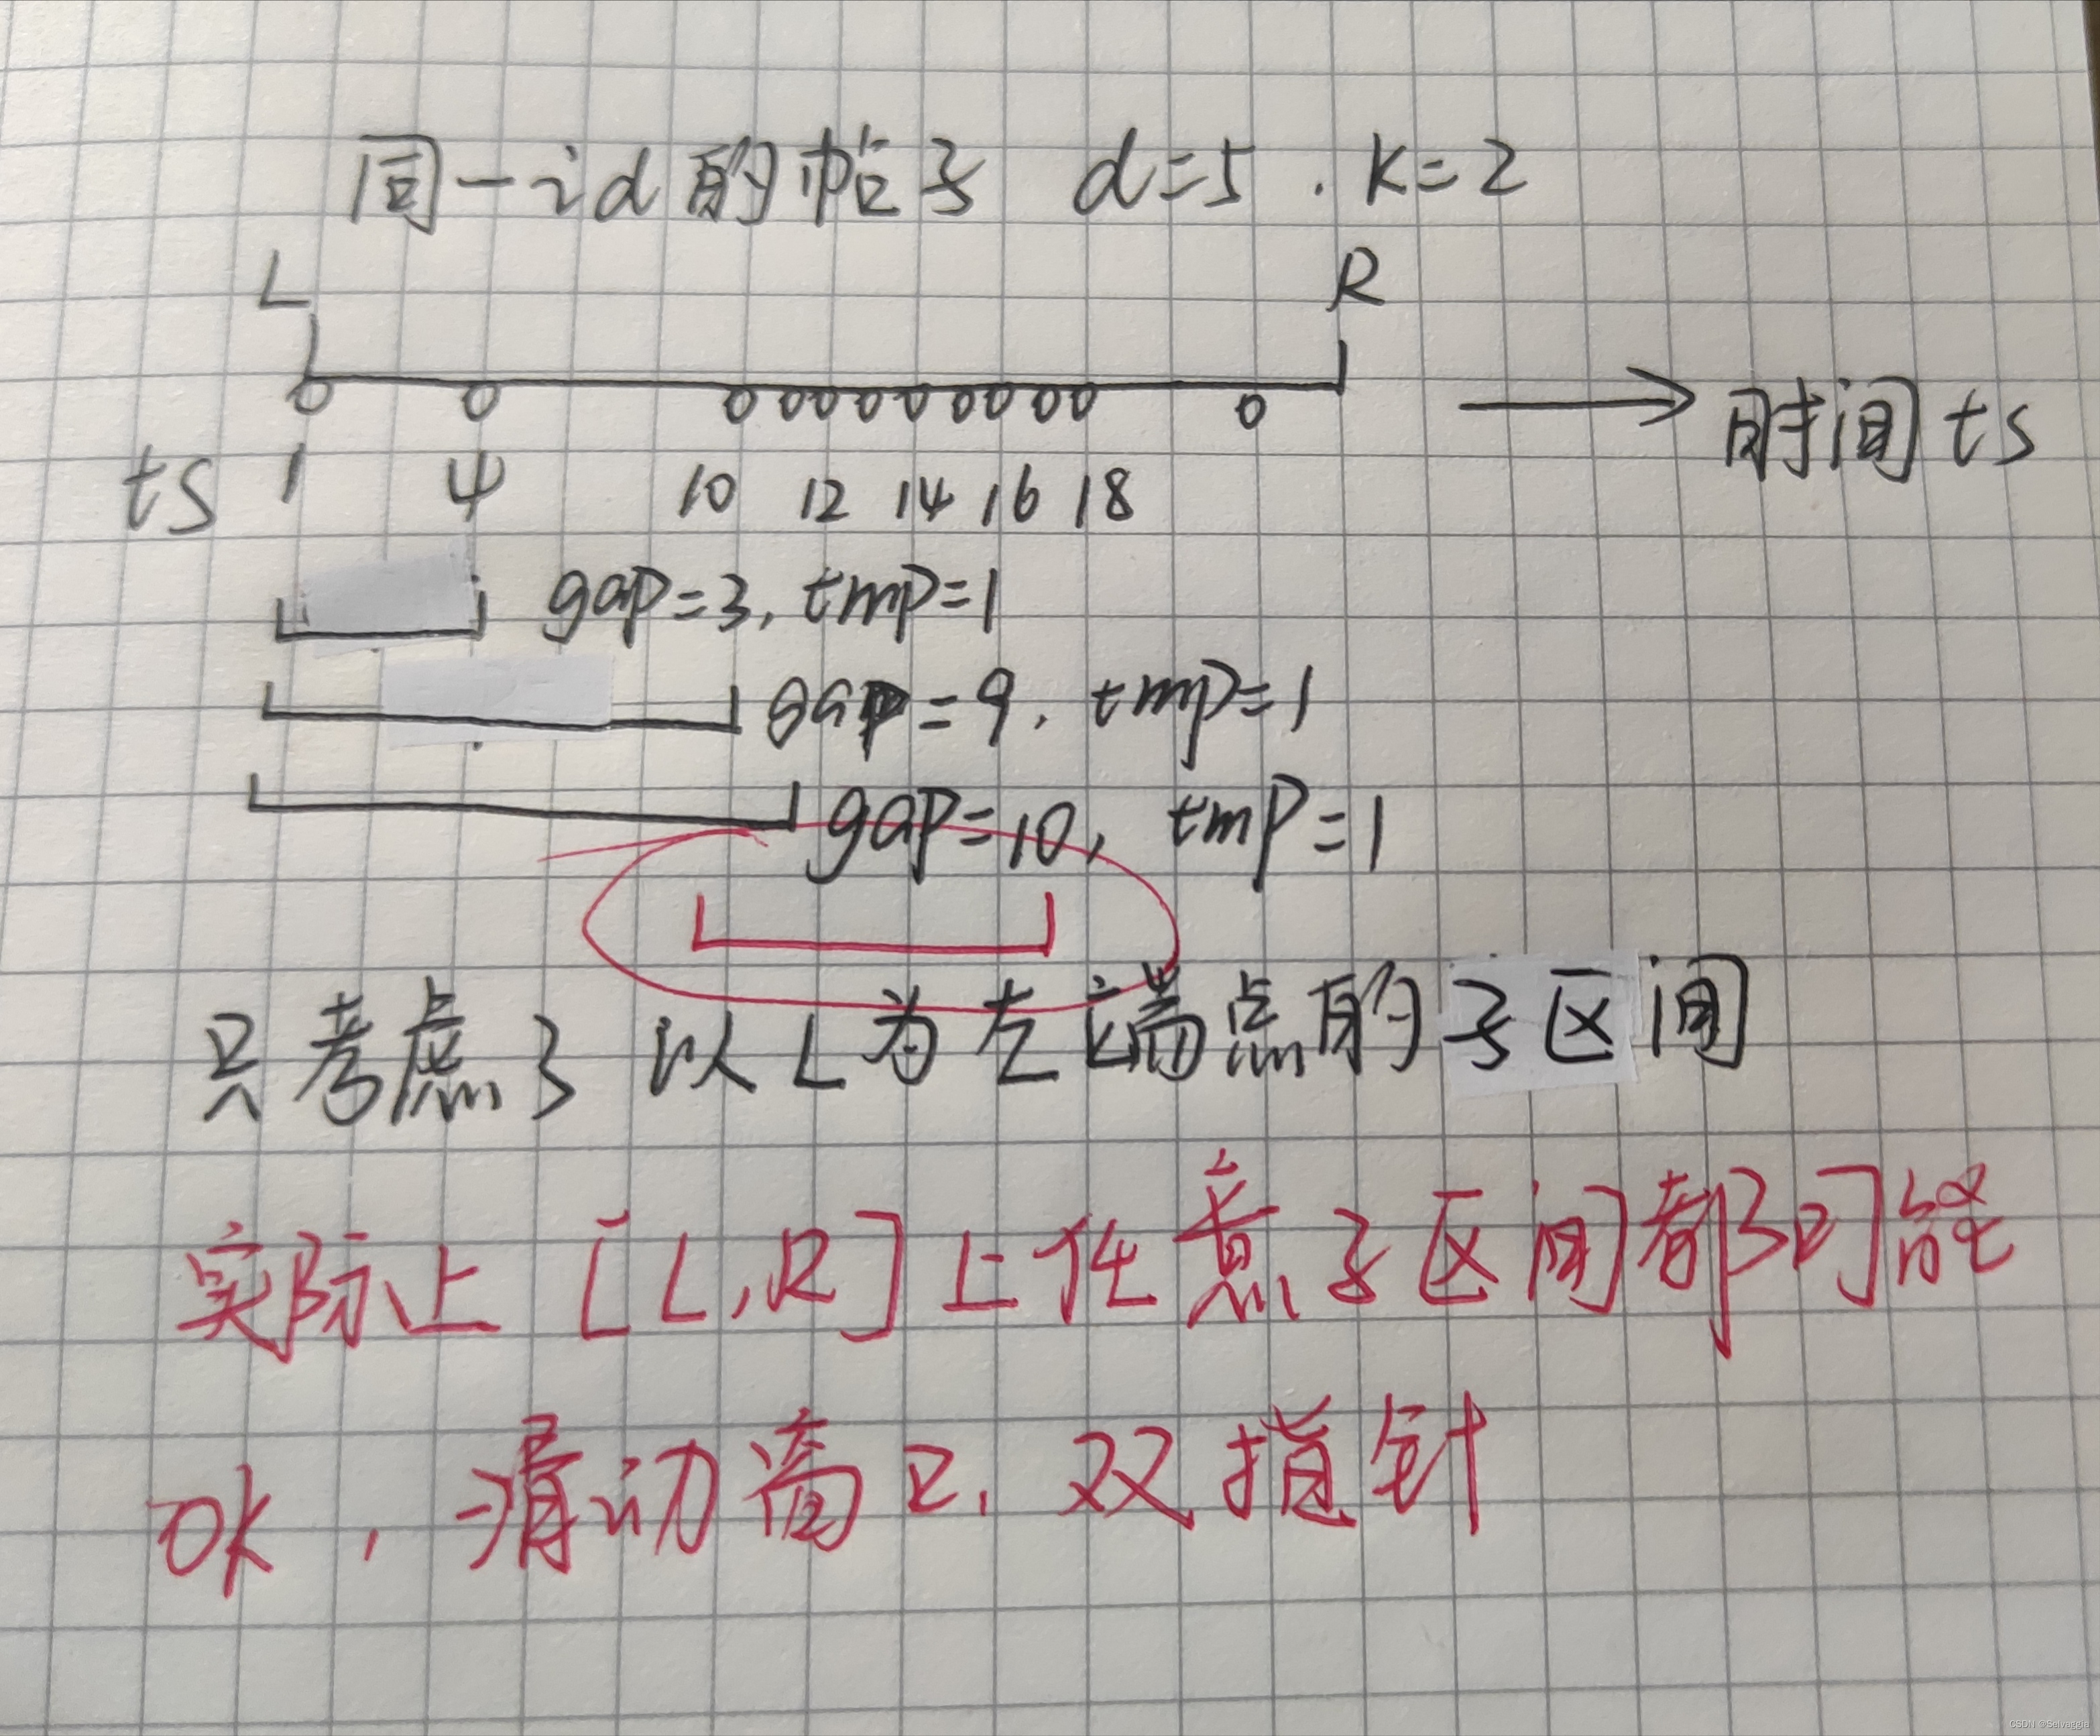 同一id的帖子 d=5 . K=2
L R
时间ts
ts 1 4 10 12 14 16 18
gap=3, tmp=1
gap=9. tmp=1
gap=10, tmp=1
只考虑了以L为左端点的子区间
实际上[L,R]上任意子区间都可能
OK,滑动窗口,双指针
CSDN @Selvaggia